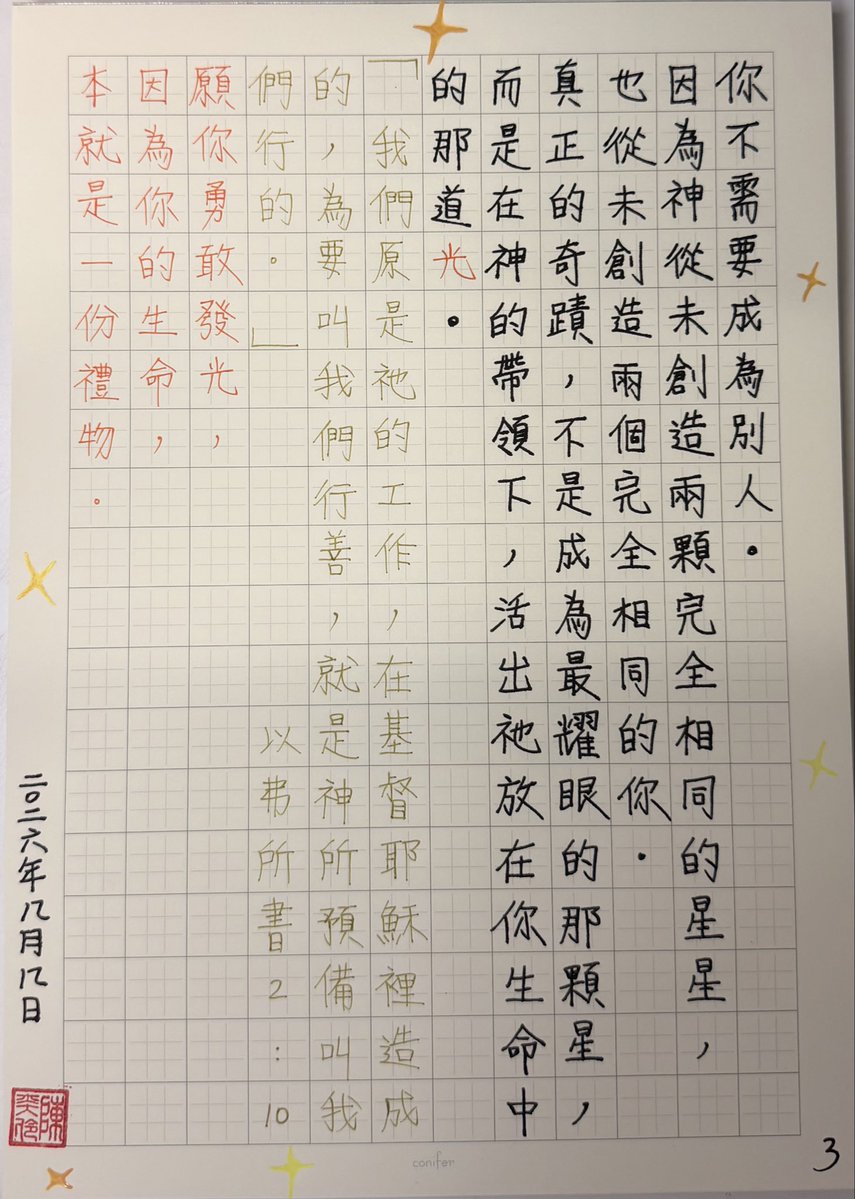 你不需要成為別人。
因為神從未創造兩顆完全相同的星星，
也從未創造兩個完全相同的你。
真正的奇蹟，不是成為最耀眼的那顆星，
而是在神的帶領下，活出祂放在你生命中
的那道光。
「我們原是祂的工作，在基督耶穌裡造成
的，為要叫我們行善，就是神所預備叫我
們行的。」以弗所書2:10
願你勇敢發光，
因為你的生命，
本就是一份禮物。
二〇二六年八月八日
陳
conifer
3